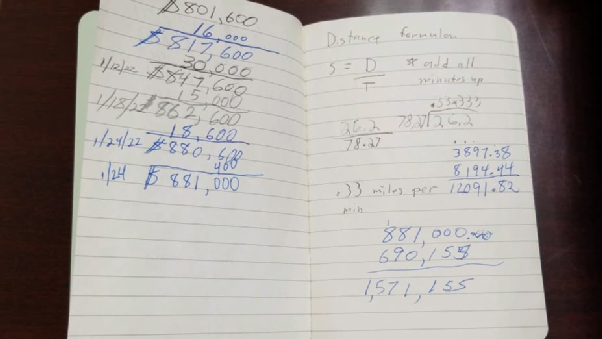 $801,600
16,000
$817,600
30,000
1/12/22 $847,600
15,000
1/18/22 $862,600
18,600
1/24/22 $880,600
400
1/24 $881,000
Distance formulas
S = D
T
* add all
minutes up
.33.333
26.2
78.27
78.27 26.2
3897.38
8194.44
.33 miles per 12091.82
min
881,000.00
690,155
1,571,155